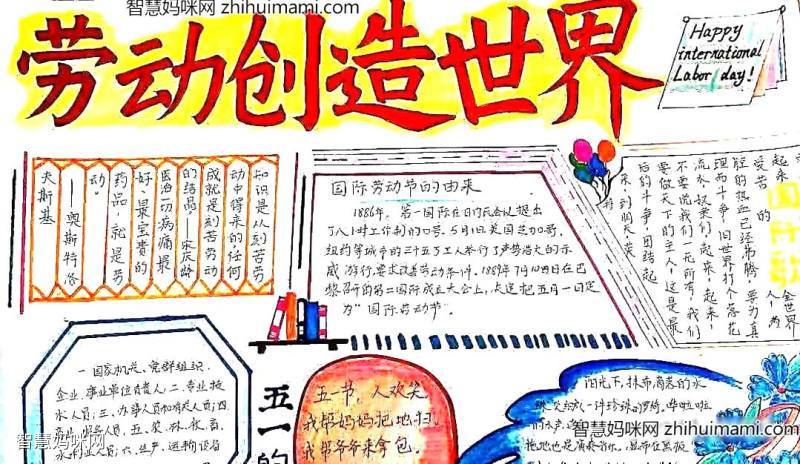 智慧妈咪网 zhihuimami.com
劳动创造世界
Happy
international
Labor day!
知识是从刻苦劳
动中得来的,任何
成就是刻苦劳动
的结晶——宋庆龄
医治一切病痛最
好、最宝贵的
药品,就是劳
动。
——奥斯特洛
夫斯基
国际劳动节的由来
1886年,第一国际在日内瓦会议提出
了八小时工作制的口号。5月1日美国芝加哥、
纽约等城市的三十五万工人举行了声势浩大的示
威游行,要求改善劳动条件。1889年7月14日在巴
黎召开的第二国际成立大会上,决定把五月一日定
为“国际劳动节”
国际歌
起来
全世界
受苦的
腔的热血已经沸腾,要为真
理而斗争!旧世界打个落花
流水,奴隶们,起来,起来!
不要说我们一无所有,我们
要做天下的主人,这是最
后的斗争,团结起
来到明天,英
特
一国家机关、党群组织、
企业、事业单位负责人;二、专业技
术人员;三、办事人员和有关人员;四
服务人员、五、农、林、牧、畜、
六、生产、运输设备
五一的
五一节,人欢笑。
我帮妈妈把地扫,
我帮爷爷来拿包。
阳光下,抹布滴落的水
珠
一串珍珠
哗啦啦
拖地也是
智慧妈咪网
智慧妈咪网 zhihuimami.com